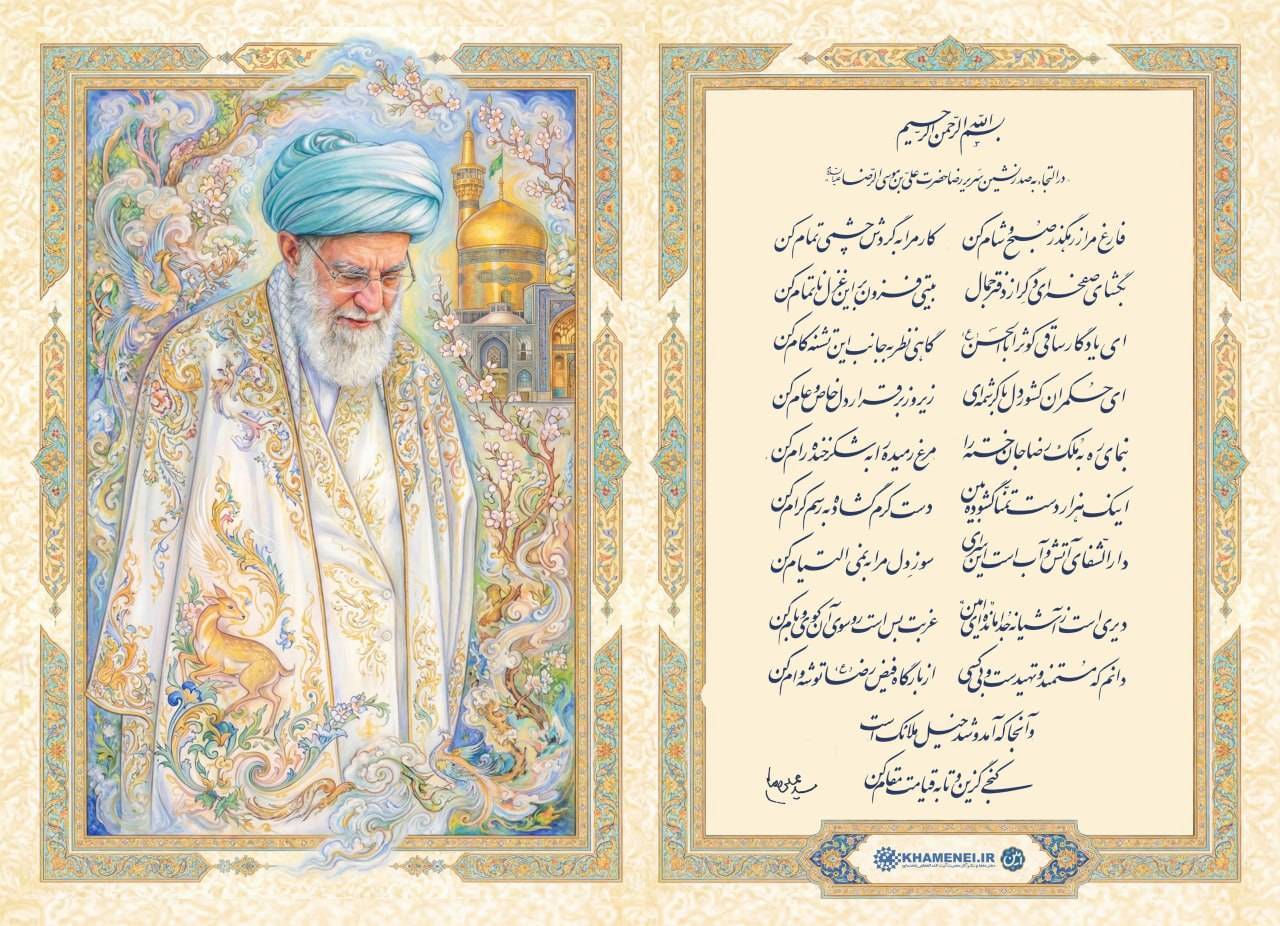 بسم الله الرحمن الرحیم
در التجاء به صدرنشین سریر رضا حضرت علی بن موسی الرضا علیه‌السلام
فارغ مرا ز رهگذر صبح و شام کن کار مرا به گردش چشمی تمام کن
بگشای صفحه‌ای دگر از دفتر جمال بیتی فزون بر این غزل ناتمام کن
ای یادگار ساقی کوثر اباالحسن (ع) گاهی نظر به جانب این تشنه کام کن
ای حکمران کشور دل با کرشمه‌ای زیر و زبر قرار دل خاص و عام کن
بنمای ره به ملک رضا جان خسته را مرغ رمیده را به شکرخنده رام کن
اینک هزار دست تمنا گشوده بین دست کرم گشاده به رسم کرام کن
دارالشفای آتش و آب است این سرای سوز دل مرا به نمی التیام کن
دیری است ز آشیانه جدا مانده‌ای امین غربت بس است رو سوی آن کوی و بام کن
دانم که مستمند و تهیدست و بی کسی از بارگاه فیض رضا (ع) توشه وام کن
و آنجا که آمد و شد خیل ملائک است
کنجی گزین و تا به قیامت مقام کن
KHAMENEI.IR